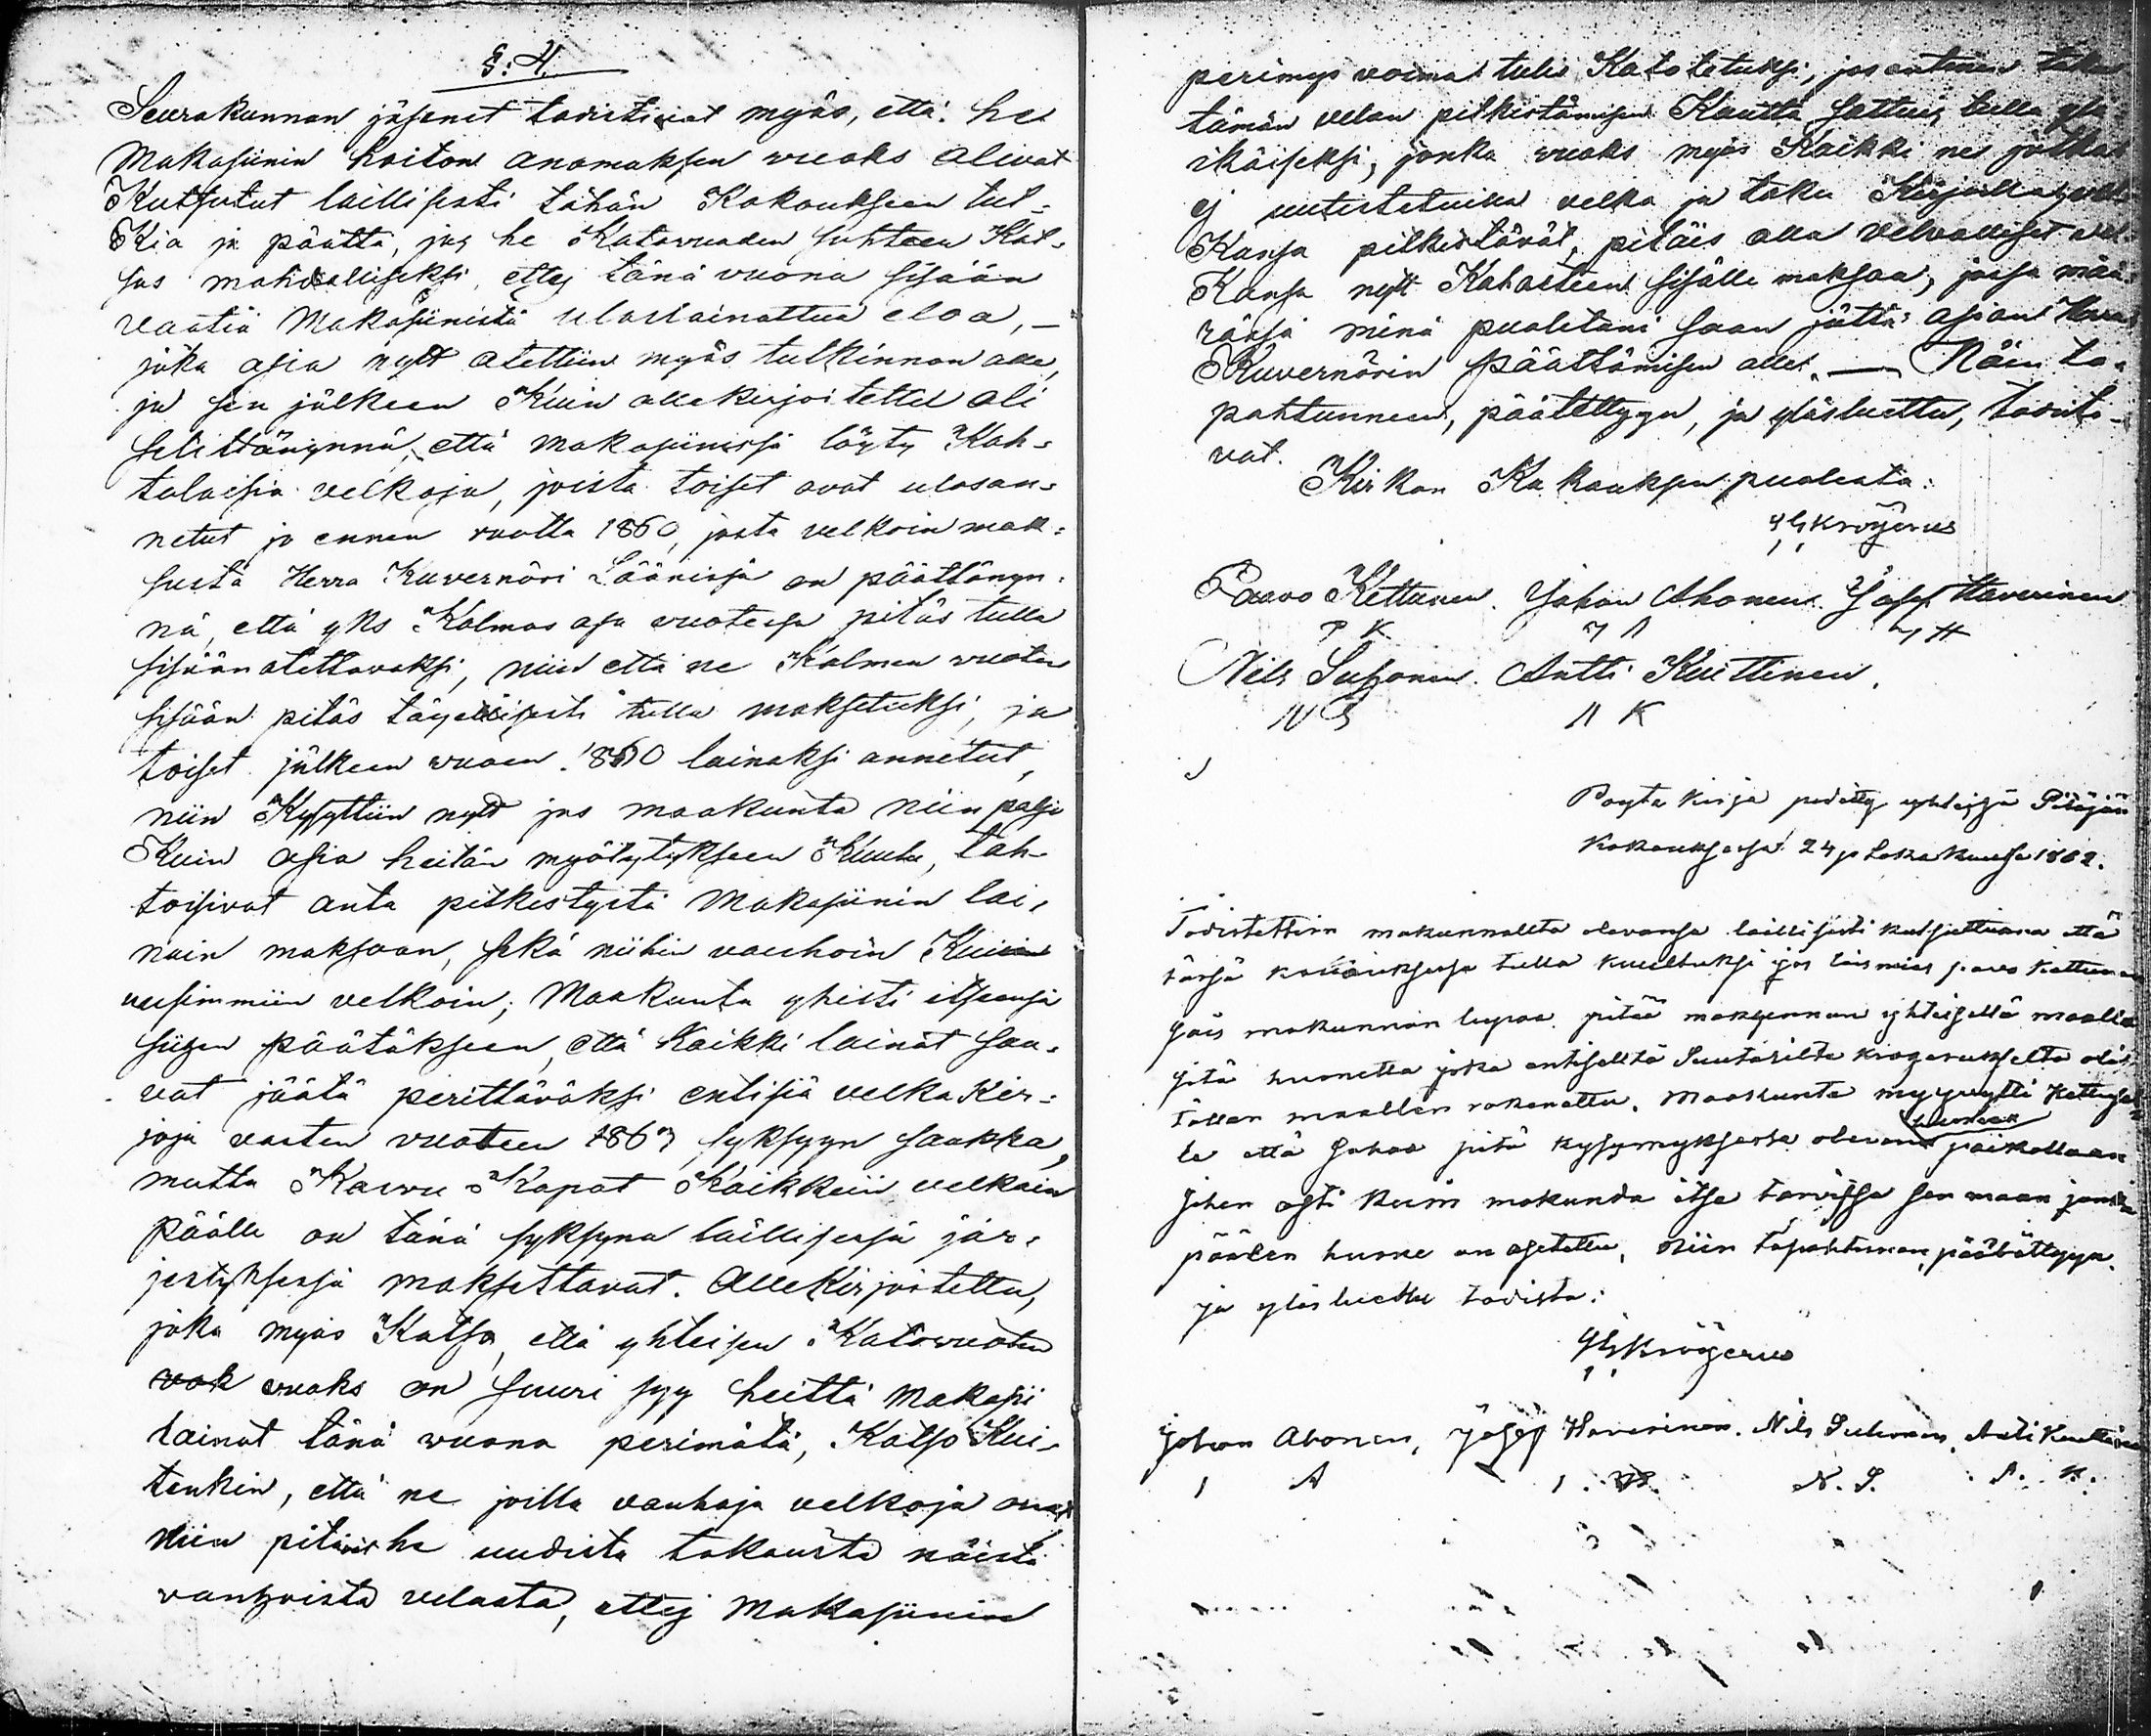 §: 4.
Seurakunnan jäsenet todistivat myös, että he
Makasiinin hoiton anomuksen vuoks olivat
Kutsutut laillisesti tähän Kokoukseen tut-
Kia ja päättä, jos he Katovuoden suhteen Kat-
sos mahdolliseksi, ettej tänä vuona sisään
vaatia Makasiinista uloslainattua eloa, —
joka asia nytt otettiin myös tutkinnon alle,
ja sen jälkeen Kuin allekirjoitettu oli
selittänynnä, että makasiinissa löyty Kah-
talaisia velkoja, joista toiset ovat ulosan-
netut jo ennen vuotta 1860, josta velkoin mak-
susta Herra Kuvernöri Läänissä on päättänyn-
nä, että yks Kolmas osa vuotessa pitäs tulla
sisäänotettavaksi, niin että ne Kolmen vuoten
sisään pitäs täyellisesti tulla maksetuksi, ja
toiset jälkeen vuoen 1860 lainaksi annetut,
niin Kysyttiin nytt jos maakunta niin paljo
Kuin asia heitän myötytykseen Kuulu, tah-
toisivat anta pitkestystä Makasiinin lai-
nain maksoon, sekä niihin vanhoin Kuin
uusimmiin velkoin; Maakunta yhisti itsensä
siihen päätökseen, että Kaikki lainat saa-
vat jäätä perittäväksi entisiä velka Kir-
joja vasten vuoteen 1863 syksyyn saakka,
mutta Kasvu Kapat Kaikkiin velkoin
päälle on tänä syksynä laillisessa jär-
jestyksessä maksettavat. Allekirjoitettu,
joka myös Katso, että yhteisen Katovuoten
vok vuoks on suuri syy heittä Makasii
lainat tänä vuona perimätä, Katso Kui-
tenkin, että ne joilla vanhoja velkoja ovat
niin pitävät he uudista takausta näistä
vanhoista velasta, ettej Makasiinin
perimys voima tulis Katotetuksi, jos entinen takau
tämän velan pitkistämisen Kautta sattuis tulla yli
ikäiseksi, jonka vuoks myös Kaikki ne jotka
ej uutistetuilla velka ja taku Kirjoilla velk
Kansa pitkistävät, pitäis olla velvolliset
Kansa nytt Kohasteen sisälle maksaa, jossa mää-
rässä minä puolestani saan jättä asian Herra
Kuvernörin päättämisen alle. — Näin ta-
pahtunneen, päätettyyn, ja yläsluettu, todista-
vat.
Kirkon Kokouksen puolesta:
Krogerus
Paavo Kettunen. Johan Ahonen. Josef Haverinen
P K J A J H
Nils Suhonen. Antti Kuittinen.
N S A K
Poyta kirja pidetty yhteisessä Pitäjän
Kokouksessa 24 p Lokakuussa 1862.
Todistettiin makunnalta olevansa laillisesti kutsuttuna että
tässä kokouksessa tulla kuulluksi jos Paavo Kettunen
sais makunnan lupaa pitää makunnan yhteisellä maalla
sitä huonetta joka entiseltä Suutarilta Krogerukselta
tällen maallen rakenettu. Maakunta myynytti
le että Sahaa pitä kysymyksessä olevan huoneen paikallaan
sihen asti kuin makunda itse tarvitse sen maan jonka
päälen huone on asetettu, Niin tapahtunneen, päätettyyn
ja yläsluettu todista:
Krögerus
Johan Ahonen, Josef Haverinen. Nils Suhonen, Anti Kuittinen
J A J. H. N. S. A. K.